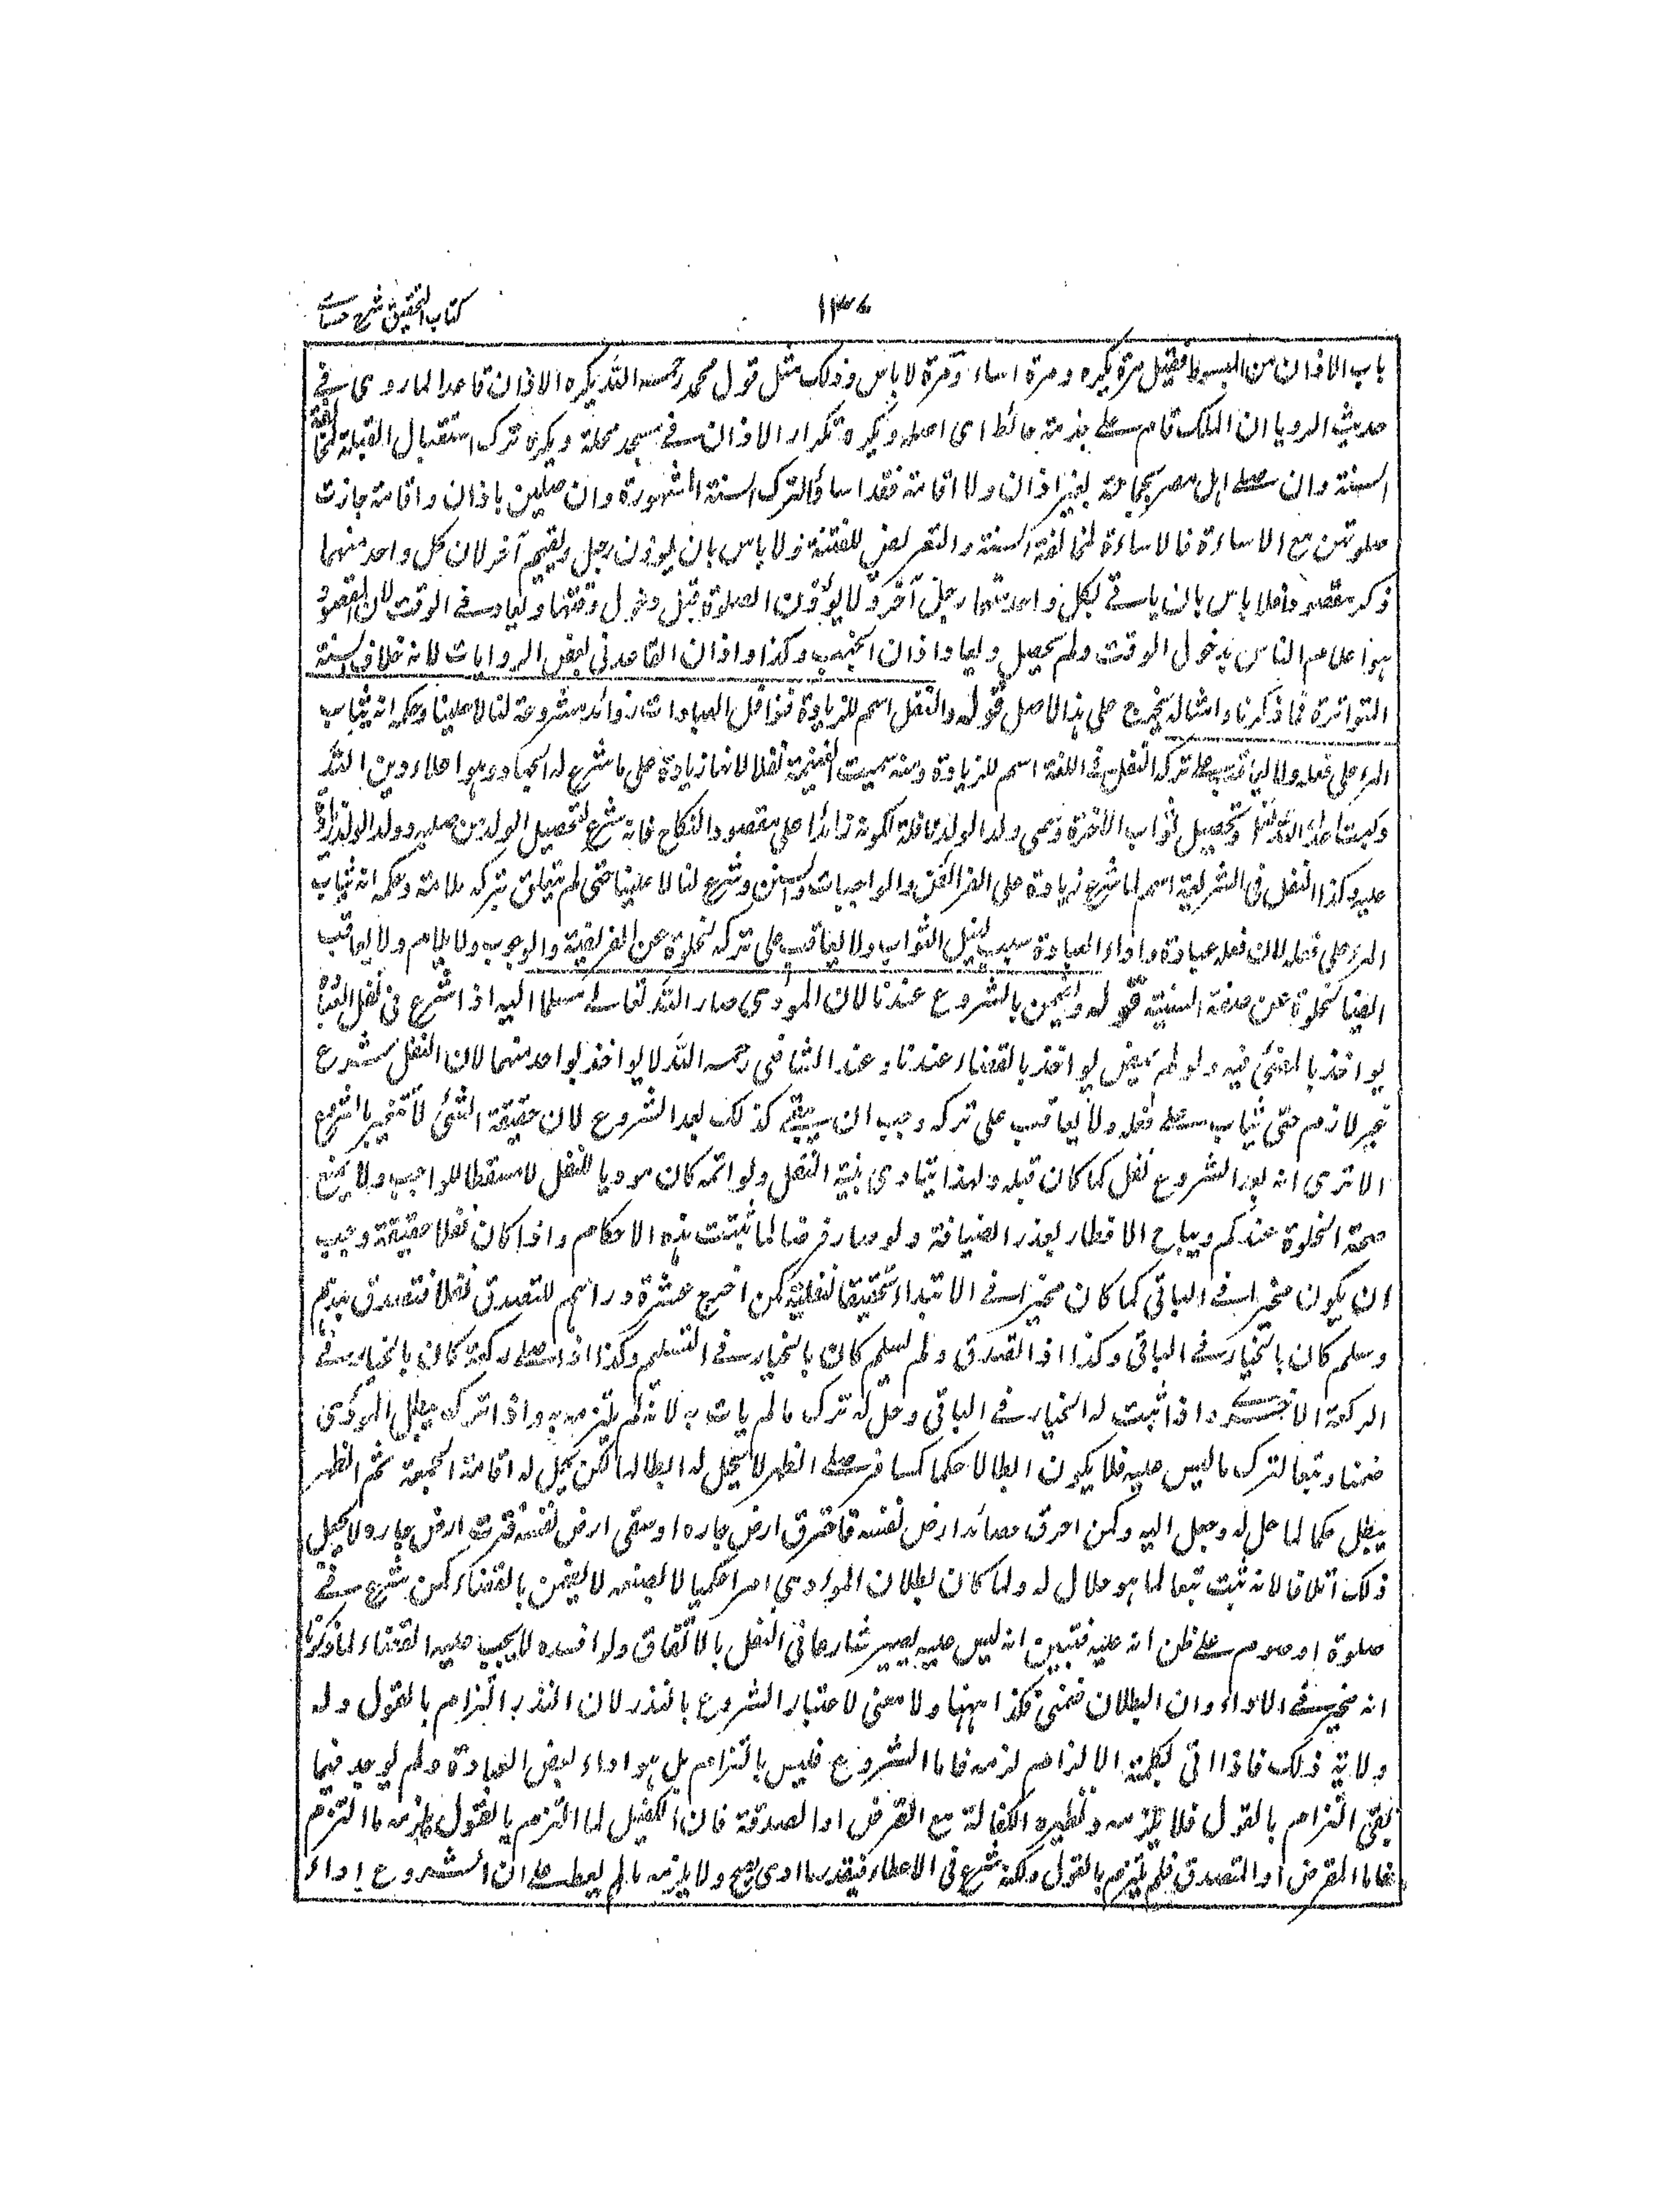 كتاب التحقيق شرح حسامى
١٣٠
باب الاذان من المبسوط فقيل مرة يكره ومرة اساء ومرة لا باس وذلك مثل قول محمد رحمه الله يكره الاذان قاعدا لما روى فى
حديث الرويا ان الملك قام على جذمة حائط اى اصله ويكره تكرار الاذان فى مسجد محلة ويكره ترك استقبال القبلة لمخالفة
السنة وان صلى اهل مصر بجماعة بغير اذان ولا اقامة فقد اساؤا لترك السنة المشهورة وان صلين باذان واقامة جازت
صلوتهن مع الاساءة فالاساءة لمخالفة السنة والتعريض للفتنة ولا باس بان يوذن رجل ويقيم آخر لان كل واحد منهما
ذكر مقصود فلا باس بان ياتى بكل واحد منهما رجل آخر ولا يؤذن الصلوة قبل دخول وقتها ويعاد فى الوقت لان المقصود
هو اعلام الناس بدخول الوقت ولم يحصل ويعاد اذان الجنب وكذا اذان القاعد فى بعض الروايات لانه خلاف السنة
المتواترة فما ذكرنا وامثاله يخرج على هذا الاصل قوله والنفل اسم للزيادة فنوافل العبادات زوائد مشروعة لنا لا علينا وحكمه انه يثاب
المرء على فعله ولا يعاقب على تركه النفل فى اللغة اسم للزيادة ومنه سميت الغنيمة نفلا لانها زيادة على ما شرع له الجهاد وهو اعلاء دين الله
وكبت اعداء الله وتحصيل ثواب الآخرة وسمى ولد الولد نافلة لكونه زائدا على مقصود النكاح فانه شرع لتحصيل الولد من صلبه وولد الولد زيادة
عليه وكذا النفل فى الشريعة اسم لما شرع زيادة على الفرائض والواجبات والسنن وشرع لنا لا علينا حتى لم يتعلق بتركه ملامة وحكمه انه يثاب
المرء على فعله لان فعله عبادة واداء العبادة سبب لنيل الثواب ولا يعاقب على تركه لخلوه عن الفرضية والوجوب ولا يلام ولا يعاتب
ايضا لخلوه عن صفة السنية قوله ويضمن بالشروع عندنا لان المودى صار لله تعالى مسلما اليه اذا شرع فى نفل
يواخذ بالمضى فيه ولو لم يمض يواخذ بالقضاء عندنا وعند الشافعى رحمه الله لا يواخذ بواحد منهما لان النفل شرع
غير لازم حتى يثاب على فعله ولا يعاقب على تركه وجب ان يبقى كذلك بعد الشروع لان حقيقة الشئ لا تتغير بالشروع
الا ترى انه بعد الشروع نفل كما كان قبله ولهذا يتادى بنية النفل ولو اتمه كان موديا للنفل لا مسقطا للواجب ولا يمنع
صحة الخلوة عندكم ويباح الافطار بعذر الضيافة ولو صار فرضا لما ثبتت هذه الاحكام واذا كان نفلا حقيقة وجب
ان يكون مخيرا فى الباقى كما كان مخيرا فى الابتداء تحقيقا لنفليته كمن اخرج عشرة دراهم للتصدق نفلا فتصدق بدرهم
وسلم كان بالخيار فى الباقى وكذا اذا تصدق ولم يسلم كان بالخيار فى التسليم وكذا اذا صلى ركعة كان بالخيار فى
الركعة الاخرى واذا ثبت له الخيار فى الباقى وحل له ترك ما لم يات به لانه لم يلتزمه به واذا ترك يبطل المودى
ضمنا وتبعا لترك ما ليس عليه فلا يكون ابطالا حكما كمسافر صلى الظهر لا يحل له ابطالها لكن يحل له اقامة الجمعة ثم الظهر
يبطل حكما لما حل له وجعل اليه وكمن احرق حصائد ارض نفسه فاحترق ارض جاره او سقى ارض نفسه فنزت ارض جاره ولا يجعل
ذلك اتلافا لانه ثبت تبعا لما هو حلال له ولما كان بطلان المودى امرا حكميا لا بصنعه لا يضمن بالقضاء كمن شرع فى
صلوة او صوم على ظن انه عليه فتبين انه ليس عليه يصير شارعا فى النفل بالاتفاق ولو افسده لا يجب عليه القضاء لما ذكرنا
انه مخير فى الاداء وان البطلان ضمنى فكذا ههنا ولا معنى لاعتبار الشروع بالنذر لان النذر التزام بالقول وله
ولاية ذلك فاذا اتى بكلمة الالزام لزمه فاما الشروع فليس بالتزام بل هو اداء بعض العبادة ولم يوجد فيما
بقى التزام بالقول فلا يلزمه ونظيره الكفالة مع القرض او الصدقة فان الكفيل لما التزم بالقول يلزمه ما التزم
فاما القرض او التصدق فلم يلتزم بالقول ولكنه شرع فى الاعطاء فبقدر ما ادى صح ولا يلزمه ما لم يعط على ان الشروع اداء